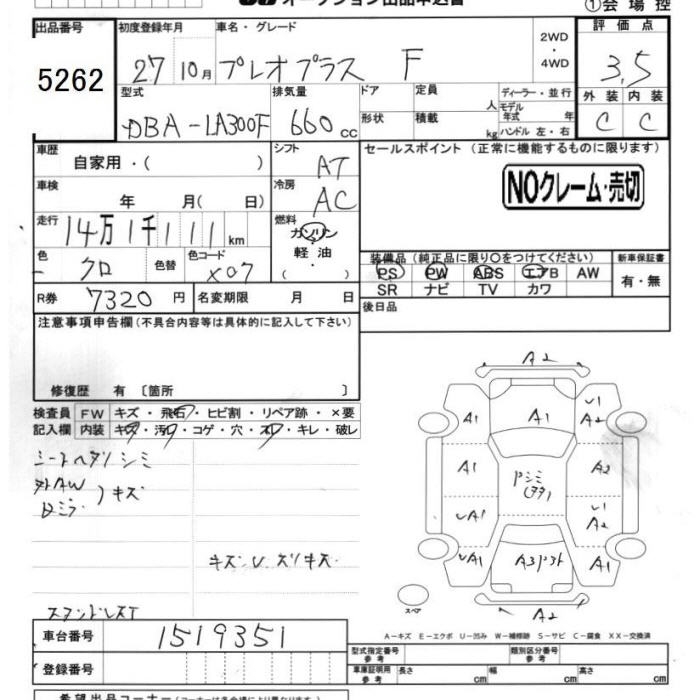 オークション出品申込書
①会場控
出品番号
5262
初度登録年月
27 10月
車名・グレード
プレオプラス F
2WD
・
4WD
評価点
3.5
外装 内装
C C
型式
DBA-LA300F
排気量
660 cc
ドア
定員
人
形状
積載
kg
ディーラー・並行
モデル年式 年
ハンドル 左・右
車歴
自家用・( )
シフト
AT
セールスポイント (正常に機能するものに限ります)
NOクレーム・売切
車検
年 月(日)
冷房
AC
走行
14万1千111 km
燃料
ガソリン
軽油
( ・ )
色
クロ
色替
色コード
X07
装備品 (純正品に限り○をつけてください)
PS PW ABS エアB AW
SR ナビ TV カワ
新車保証書
有・無
R券 7320円
名変期限 月 日
後日品
注意事項申告欄(不具合内容等は具体的に記入して下さい)
修復歴 有 〔箇所 〕
検査員記入欄
FW キズ・飛石・ヒビ割・リペア跡・×要
内装 キズ・汚れ・コゲ・穴・スレ・キレ・破レ
シートヘタリシミ
キズ
キズ U スリキズ
A2
A1
A1
U1
A2
A1
A2
シミ
UA1
U1
A2
UA1
A1
A2
スペア
A-キズ E-エクボ U-凹み W-補修跡 S-サビ C-腐食 XX-交換済
車台番号
1519351
登録番号
型式指定番号
参考
類別区分番号
参考
車庫証明用
参考
長さ cm
幅 cm
高さ cm
希望出品コーナー